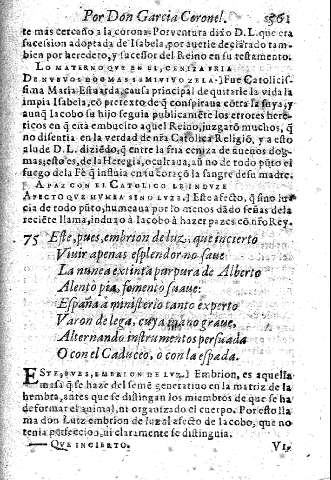 Por Don Garcia Coronel. 361
te más cercano a la corona: Por ventura dixo D. L. que era
sucession adoptada de Isabela, por auerle declarado tam-
bien por heredero, y sucessor del Reino en su testamento.
LO MATERNO QUE EN EL, CENIZA FRIA
DE NUEVOS DOGMAS SEMIVIVO ZELA.] Fue Catolicis-
sima Maria Estuarda, causa principal de quitarle la vida la
impia Isabela, cõ pretexto de q̃ conspiraua côtra la suya, y
aunq̃ Iacobo su hijo seguia publicamẽte los errores hereti-
cos en q̃ està embuelto aquel Reino, juzgarõ muchos, q̃
no disentia en la verdad de nr̃a Catolica Religiõ, y a esto
alude D. L. diziẽdo, q̃ entre la fria ceniza de nueuos dog-
mas, esto es, de la Heregia, ocultaua, aũ no de todo pũto el
fuego de la Fè q̃ influia en tu coraçõ la sangre de su madre.
A PAZ CON EL CATOLICO LE INDUZE
AFECTO QUE HUMEA SINO LUZE.] Este afecto, q̃ sino lu-
cia de todo pũto, humeaua por lo menos dãdo señas de la
reciẽte llama, induzo à Iacobo à hazer pazes cõ nr̃o Rey.
75 Este, pues, embrion de luz, que incierto
Viuir apenas esplendor no saue:
La nunca extinta purpura de Alberto
Alento pia, fomento suaue:
España a ministerio tanto experto
Varon delega, cuya mano graue,
Alternando instrumentos persuada
O con el Caduceo, ò con la espada.
ESTE, PUES, EMBRION DE LUZ.] Embrion, es aquella
masa q̃ se haze del semẽ generatiuo en la matriz de la
hembra, antes que se distingan los miembros de que se ha
de formar el animal, ni organizado el cuerpo. Por esto lla-
ma don Luis embrion de luz al afecto de Iacobo, que no
tenia perfeccion, ni claramente se distinguia.
QUE INCIERTO. VI-